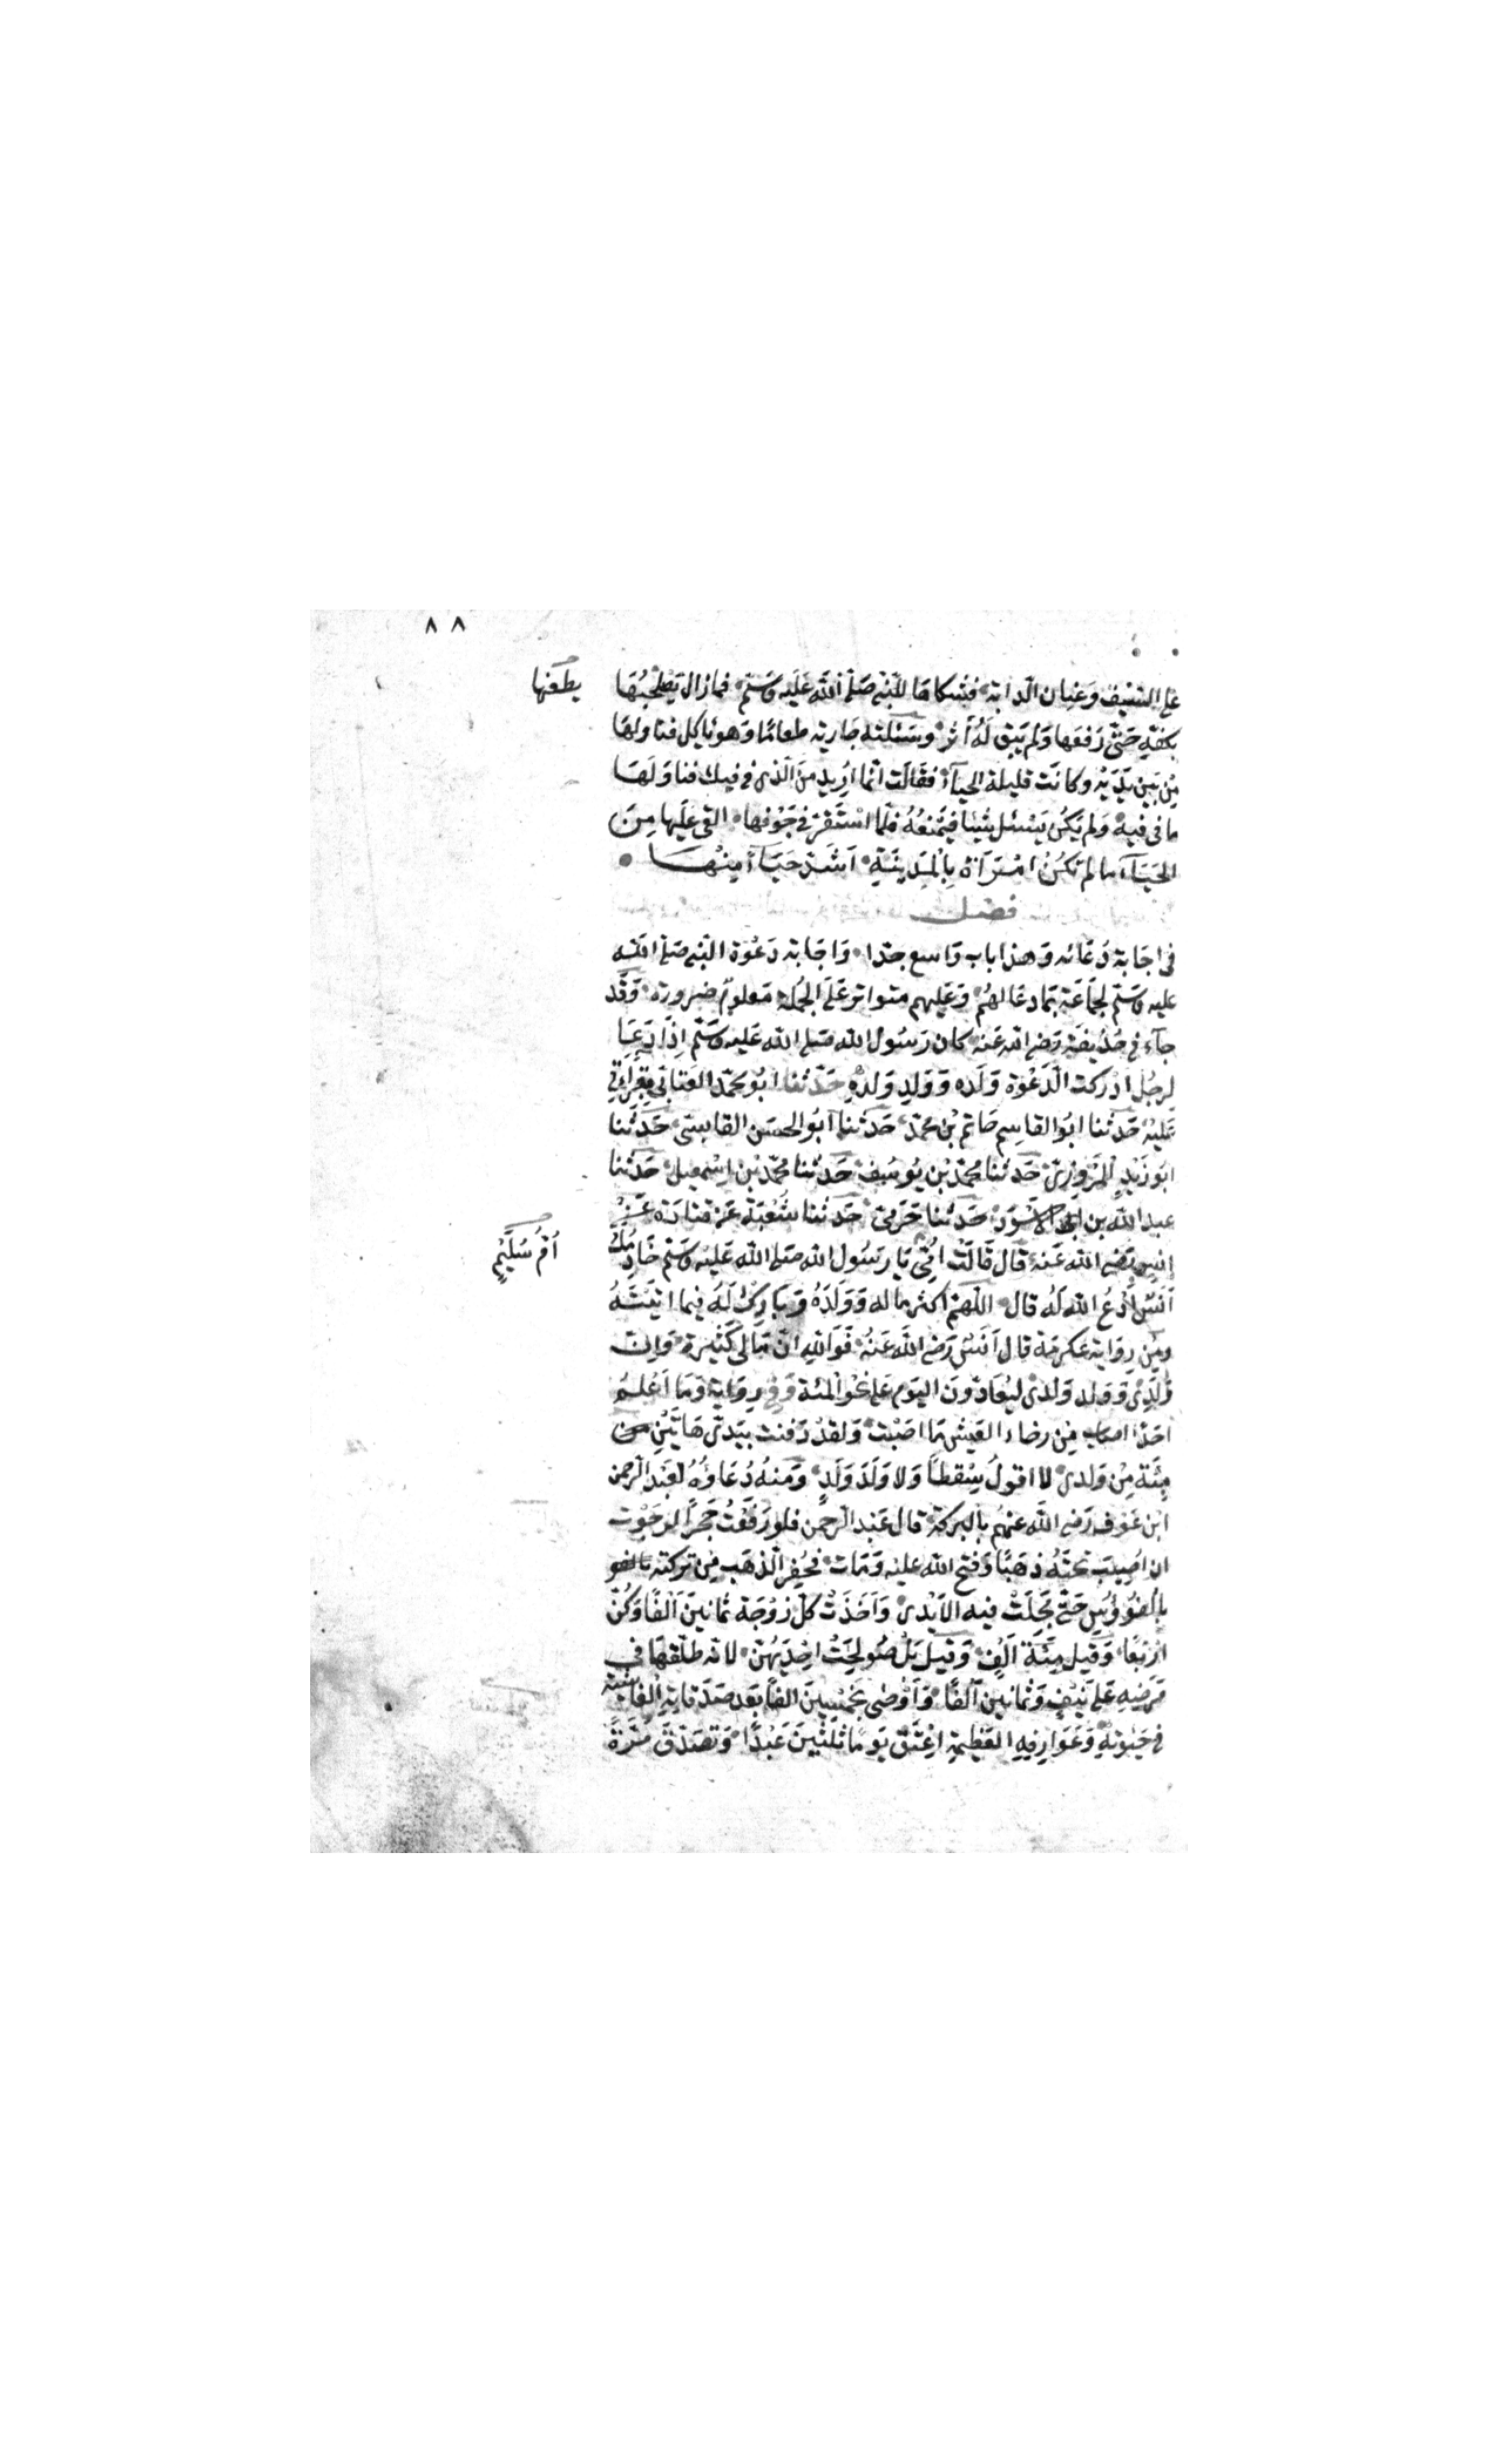 ٨٨
على السيف وعنان الدابة فشكاها للنبي صلى الله عليه وسلم فمازال يطحنها
يطحنها
بكفه حتى رفعها ولم يبق له أثر وسئلته جارية طعاما وهو يأكل فناولها
من بين يديه وكانت قليلة الحيآء فقالت انما اريد من الذى فى فيك فناولها
ما فى فيه ولم يكن يسئل شيئا فيمنعه فلما استقر فى جوفها القى عليها من
الحيآء ما لم تكن امرأة بالمدينة اشد حيآء منها
فصل
فى اجابة دعائه وهذا باب واسع جدا واجابة دعوة النبى صلى الله
عليه وسلم لجماعة بما دعا لهم وعليهم متواتر على الجملة معلوم ضرورة وقد
جآء فى حذيفة رضى الله عنه كان رسول الله صلى الله عليه وسلم اذا دعا
لرجل ادركت الدعوة ولده وولد ولده حدثنا ابو محمد العتابى بقراءتى
عليه حدثنا ابو القاسم حاتم بن محمد حدثنا ابو الحسن القابسى حدثنا
ابو زيد المروزى حدثنا محمد بن يوسف حدثنا محمد بن اسمعيل حدثنا
عبد الله بن ابى الاسود حدثنا حرمى حدثنا شعبة عن قتادة عن
انس رضى الله عنه قال قالت امى يا رسول الله صلى الله عليه وسلم خادمك
ام سليم
انس ادع الله له قال اللهم اكثر ماله وولده وبارك له فيما اتيته
ومن رواية عكرمة قال انس رضى الله عنه فوالله ان مالى كثيرة وان
ولدى وولد ولدى ليعادون اليوم على نحو المئة وفى رواية وما اعلم
احدا اصاب من رخاء العيش ما اصبت ولقد دفنت بيدى هاتين من
مئة من ولدى لا اقول سقطا ولا ولد ولد ومنه دعاؤه لعبد الرحمن
ابن عوف رضى الله عنهم بالبركة قال عبد الرحمن فلو رفعت حجرا لرجوت
ان اصيب تحته ذهبا وفتح الله عليه ومات فحفر الذهب من تركته بالفو
بالفؤوس حتى مجلت فيه الايدى واخذت كل زوجة ثمانين الفا وكن
اربعا وقيل مئة الف وقيل بل صولحت احديهن لانه طلقها فى
مرضه على نيف وثمانين الفا واوصى بخمسين الفا بعد صدقاته الفاشية
فى حيوته وعوارفه العظيمة اعتق يوما ثلثين عبدا وتصدق مرة